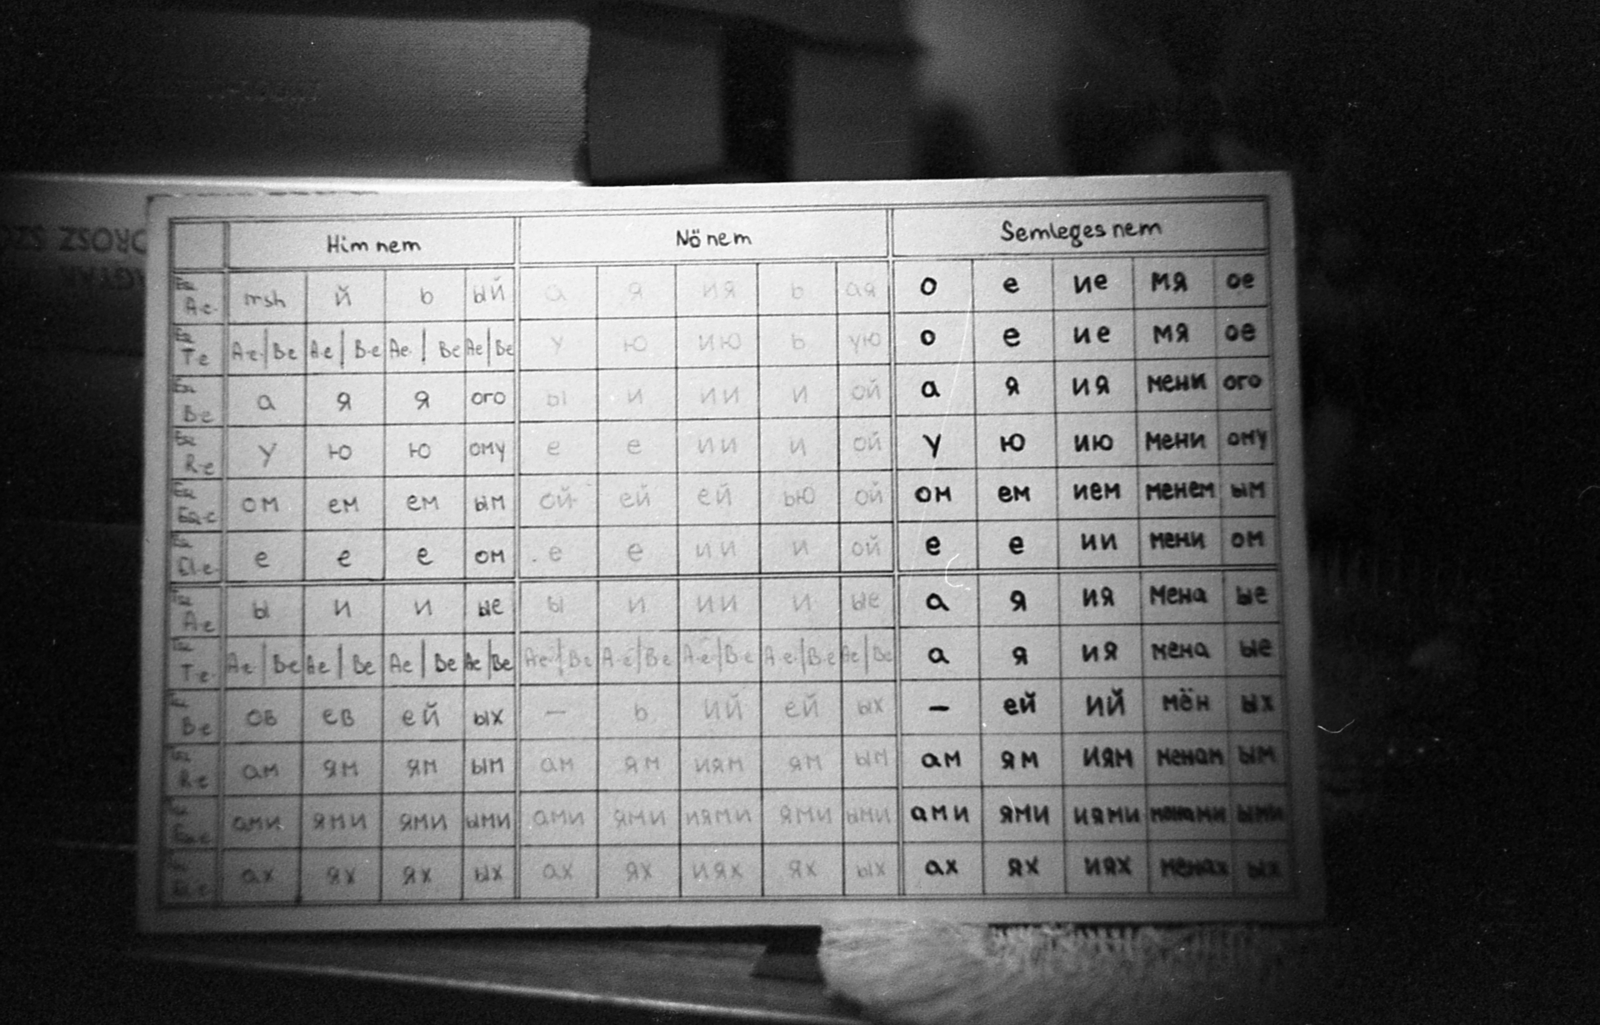 OROSZ
MAGYAR
Him nem Nő nem Semleges nem
Esz Ae. msh й ь ый а я ия ь ая о е ие мя ое
Esz Te Ae|Be Ae|Be Ae|Be Ae|Be у ю ию ь ую о е ие мя ое
Esz Be а я я ого ы и ии и ой а я ия мени ого
Esz Re у ю ю ому е е ии и ой у ю ию мени ому
Esz Ese ом ем ем ым ой ей ей ью ой ом ем ием менем ым
Esz Ele е е е ом е е ии и ой е е ии мени ом
Tsz Ae ы и и ые ы и ии и ые а я ия мена ые
Tsz Te Ae|Be Ae|Be Ae|Be Ae|Be Ae|Be Ae|Be Ae|Be Ae|Be Ae|Be а я ия мена ые
Tsz Be ов ев ей ых — ь ий ей ых — ей ий мён ых
Tsz Re ам ям ям ым ам ям иям ям ым ам ям иям менам ым
Tsz Ese ами ями ями ыми ами ями иями ями ыми ами ями иями менами ыми
Tsz Ele ах ях ях ых ах ях иях ях ых ах ях иях менах ых